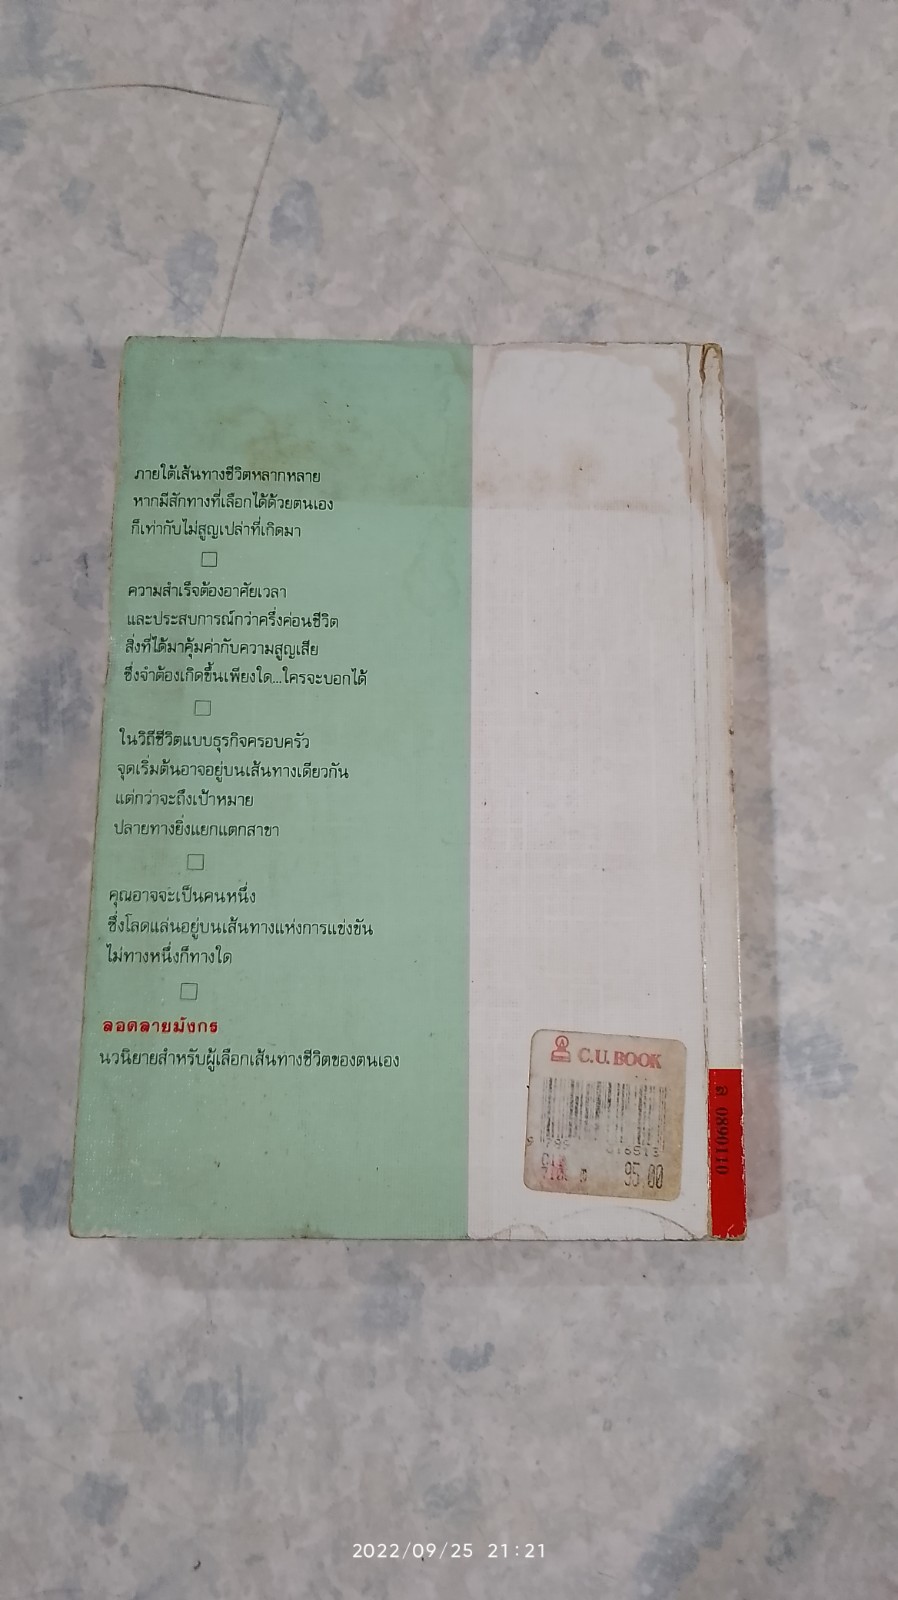 ภายใต้เส้นทางชีวิตหลากหลาย
หากมีสักทางที่เลือกได้ด้วยตนเอง
ก็เท่ากับไม่สูญเปล่าที่เกิดมา
ความสำเร็จต้องอาศัยเวลา
และประสบการณ์กว่าครึ่งค่อนชีวิต
สิ่งที่ได้มาคุ้มค่ากับความสูญเสีย
ซึ่งจำต้องเกิดขึ้นเพียงใด...ใครจะบอกได้
ในวิถีชีวิตแบบธุรกิจครอบครัว
จุดเริ่มต้นอาจอยู่บนเส้นทางเดียวกัน
แต่กว่าจะถึงเป้าหมาย
ปลายทางยิ่งแยกแตกสาขา
คุณอาจจะเป็นคนหนึ่ง
ซึ่งโลดแล่นอยู่บนเส้นทางแห่งการแข่งขัน
ไม่ทางหนึ่งก็ทางใด
ลอดลายมังกร
นวนิยายสำหรับผู้เลือกเส้นทางชีวิตของตนเอง
C.U. BOOK
95.00
0890110
2022/09/25 21:21